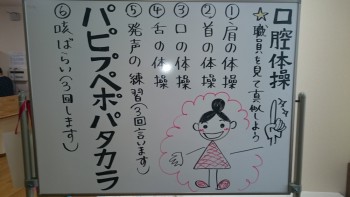 口腔体操
☆職員を見て真似しよう
①肩の体操
②首の体操
③口の体操
④舌の体操
⑤発声の練習(3回言います)
パピプペポパタカラ
⑥咳ばらい(3回します)